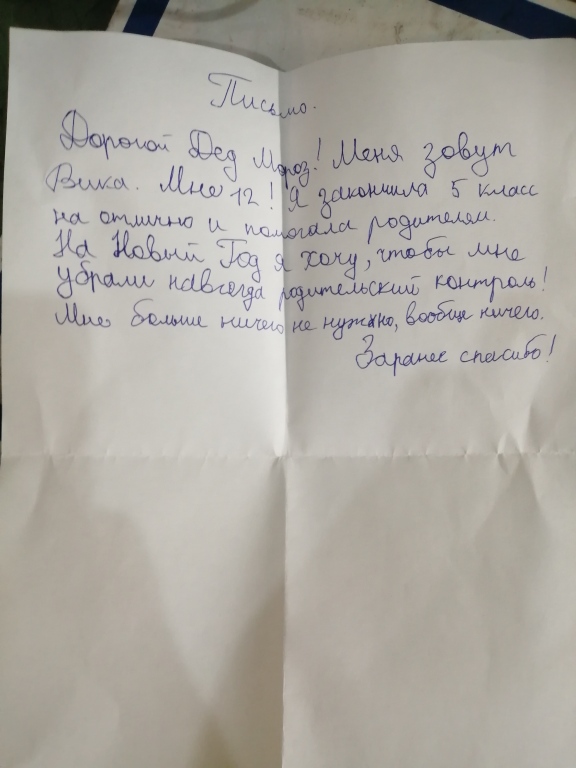 Письмо.
Дорогой Дед Мороз! Меня зовут
Вика. Мне 12! Я закончила 5 класс
на отлично и помогала родителям.
На Новый Год я хочу, чтобы мне
убрали навсегда родительский контроль!
Мне больше ничего не нужно, вообще ничего.
Заранее спасибо!